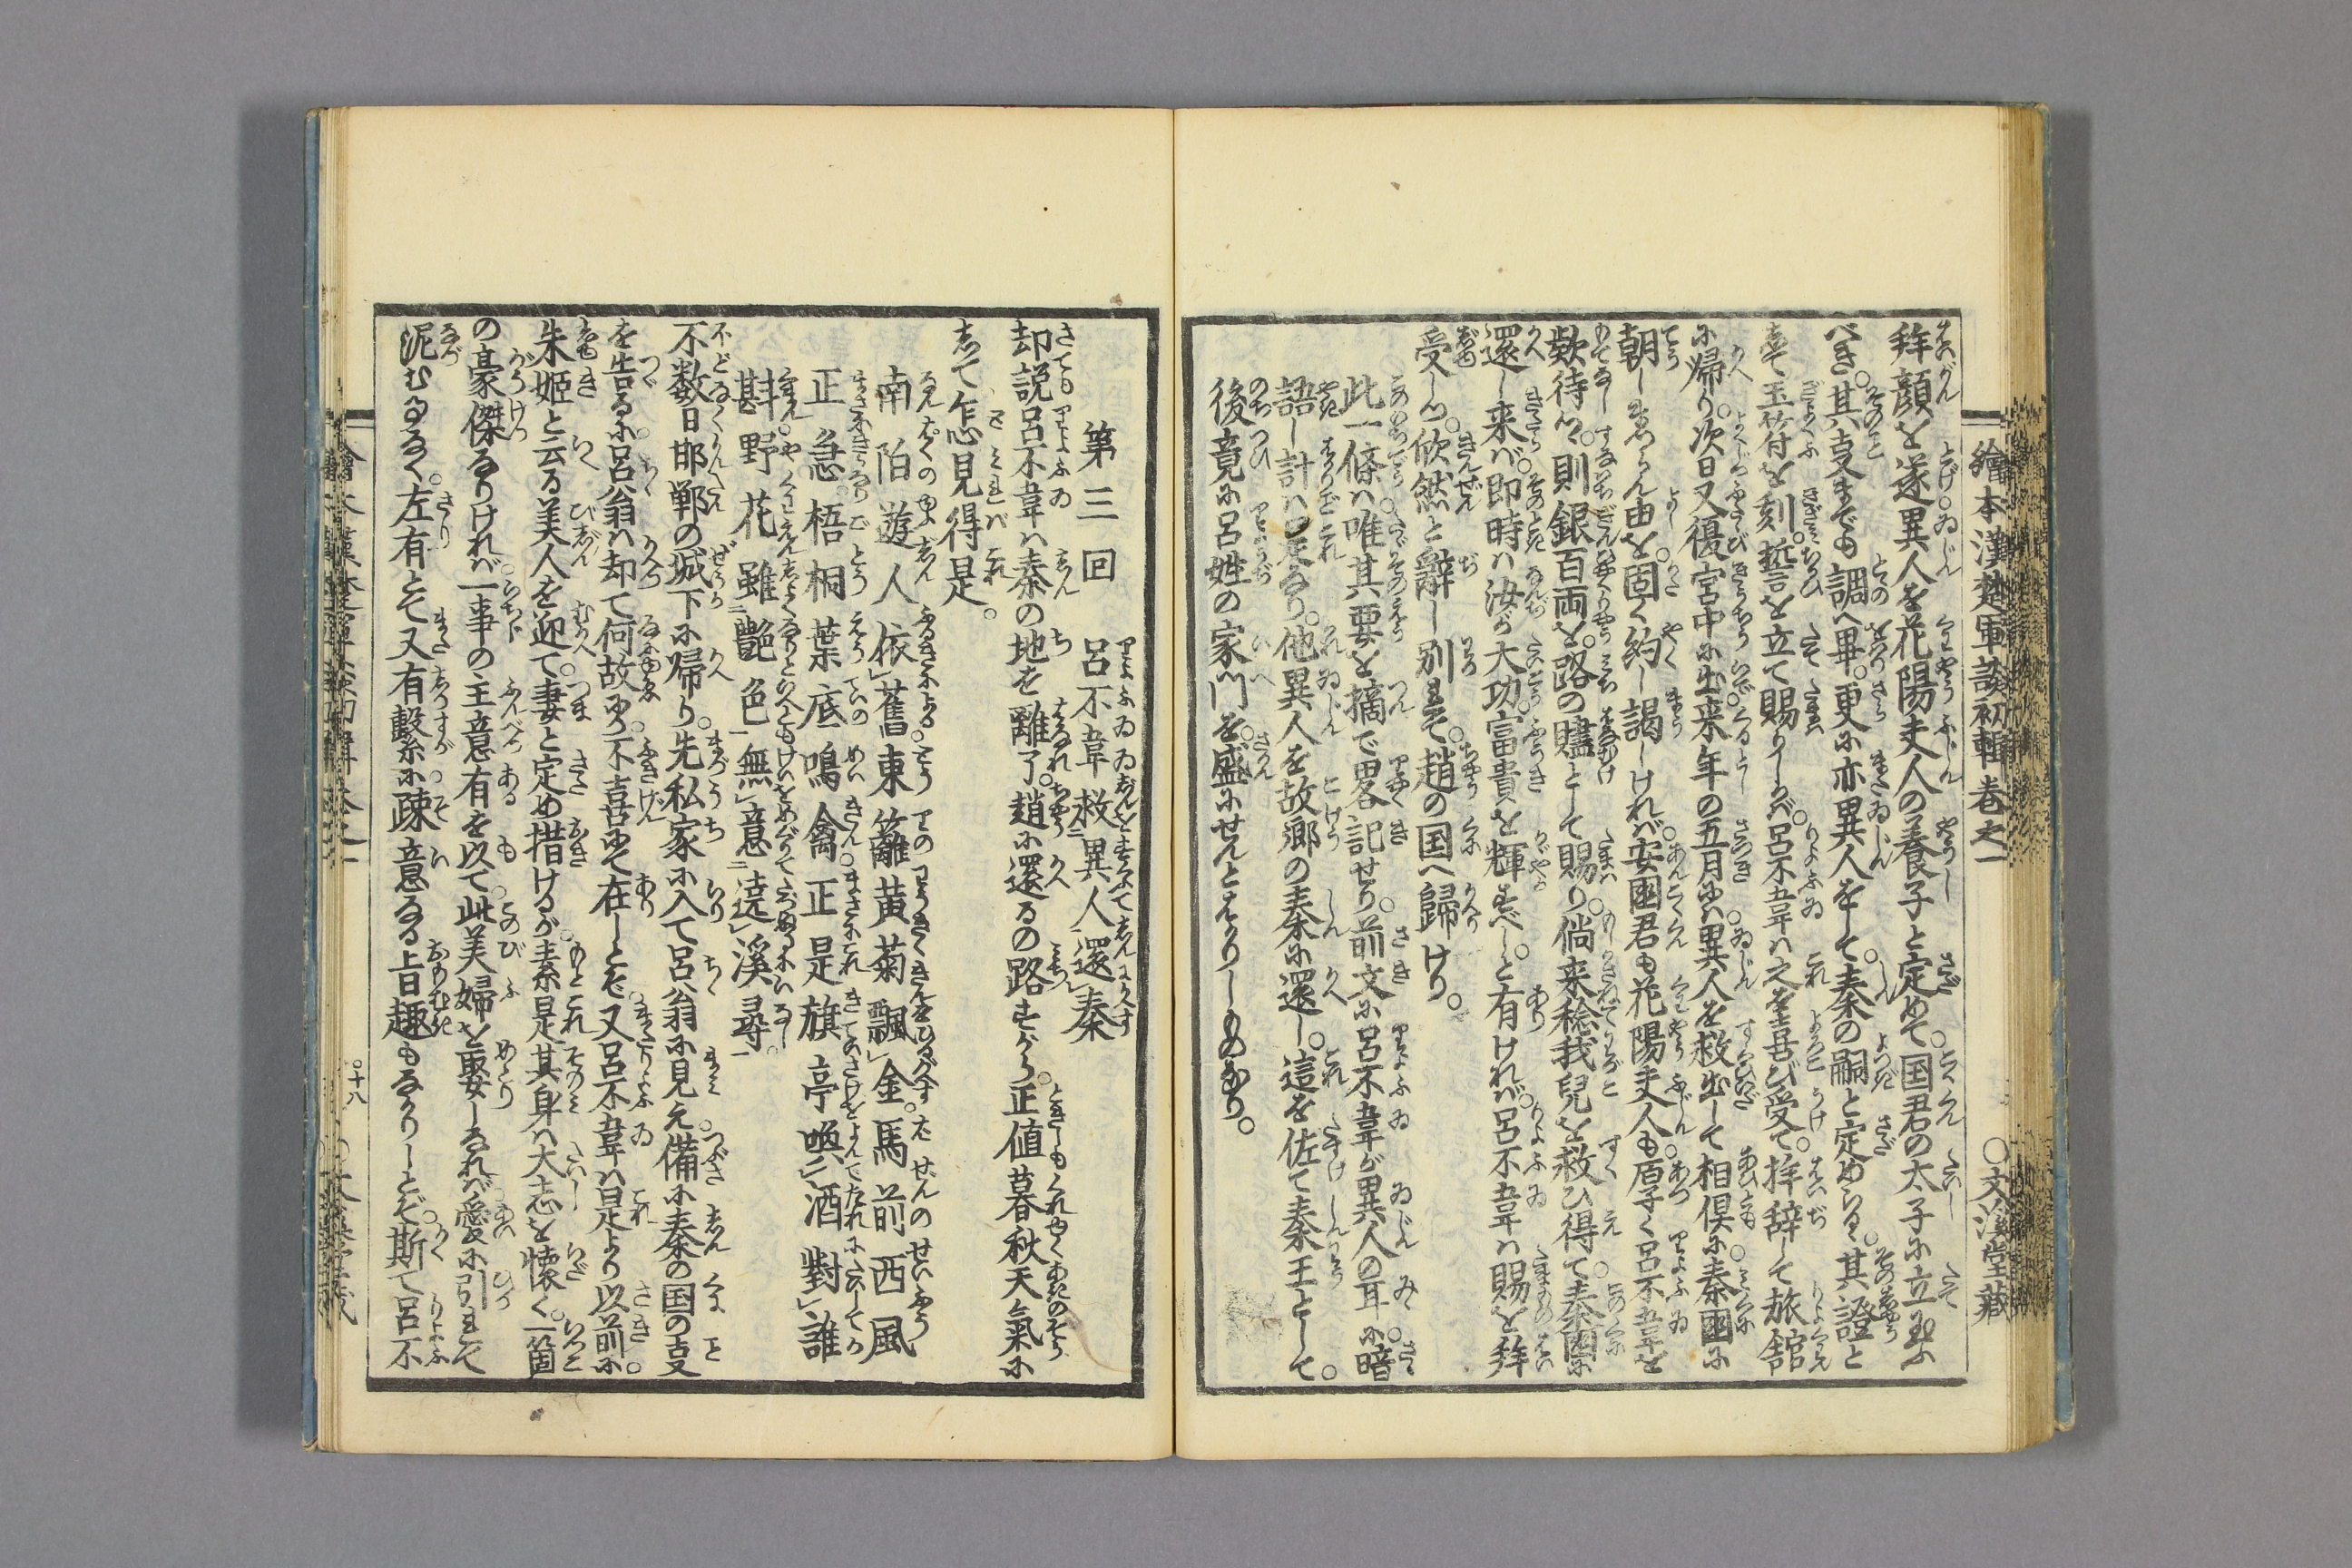 繪本漢楚軍談初輯巻之一 ○文溪堂藏
拜顔を遂異人を花陽夫人の養子と定めて。国君の太子に立玉ふ
べき。其𫝆までも調へ畢。更に亦異人をして。秦の嗣と定めらる。其證と
玉符を刻。誓言を立て賜りしかバ。呂不韋ハ之を喜び受て。拝辞して旅館
に帰り。次日又復宮中に出。来年の五月にハ異人を救出して相倶に秦國に
朝しまゐらん由を。固く約し謁しけれバ。安國君も花陽夫人も厚く呂不韋を
欵待つ。則銀百両を。路の贐として賜り。倘来稔我兒を救ひ得て。秦國に
還し来バ。即時ハ汝が大功。富貴を輝すべし。と有けれバ。呂不韋ハ賜を拜
受しつ。欣然と辭し別れて。趙の国へ歸けり。
此一條ハ。唯其要を摘で畧記せり。前文に呂不韋が異人の耳に。暗
語し計ハ是なり。他異人を故郷の秦に還し。這を佐て秦王として。
後竟に呂姓の家門を。盛にせんとはかりしものなり。
第三回 呂不韋救異人還秦
却説呂不韋ハ秦の地を離了。趙に還るの路すがら。正値暮秋天氣に
して怎見得是。
南陌遊人依舊東籬黄菊飄金。馬前西風
正急。梧桐葉底鳴禽。正是旗亭喚酒對誰
斟。野花雖艶色無意遶溪尋。
不数日邯鄲の城下に帰り。先私家に入て呂翁に見え。備に秦の国の𫝆
を告るに。呂翁ハ却て何故にか。不喜にて在しとぞ。又呂不韋ハ是より以前に。
朱姫と云る美人を迎て。妻と定め措けるが。素是其身ハ大志を懐く。一箇
の豪傑なりけれバ。一事の主意有を以て。此美婦を娶しなれバ。愛に引れて
泥むことなく。左有とて又有繋に。疎意なる旨趣もなかりしとぞ。斯て呂不
○十八